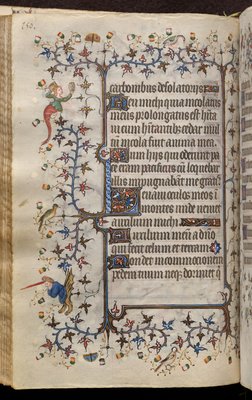 carbonibus desolatorijs
Heu michi quia incolatus
meus prolongatus est hita
ui cum hitantibus cedar mul
tu incola fuit anima mea
Cum hijs qui oderunt pa
cem eram pacificus cu loquebar
illis inpugnabāt me gratis
Leuaui oculos meos i
montes unde ueniet
auxilium michi
Auxilium meum a dño
qui fecit celum et terram
Non det in commocionem
pedem tuum neqꝫ